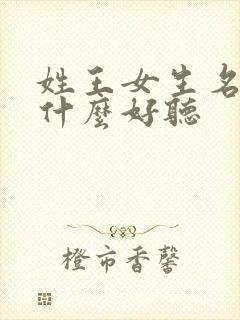 姓王女生名
什麼好聽
橙市香馨